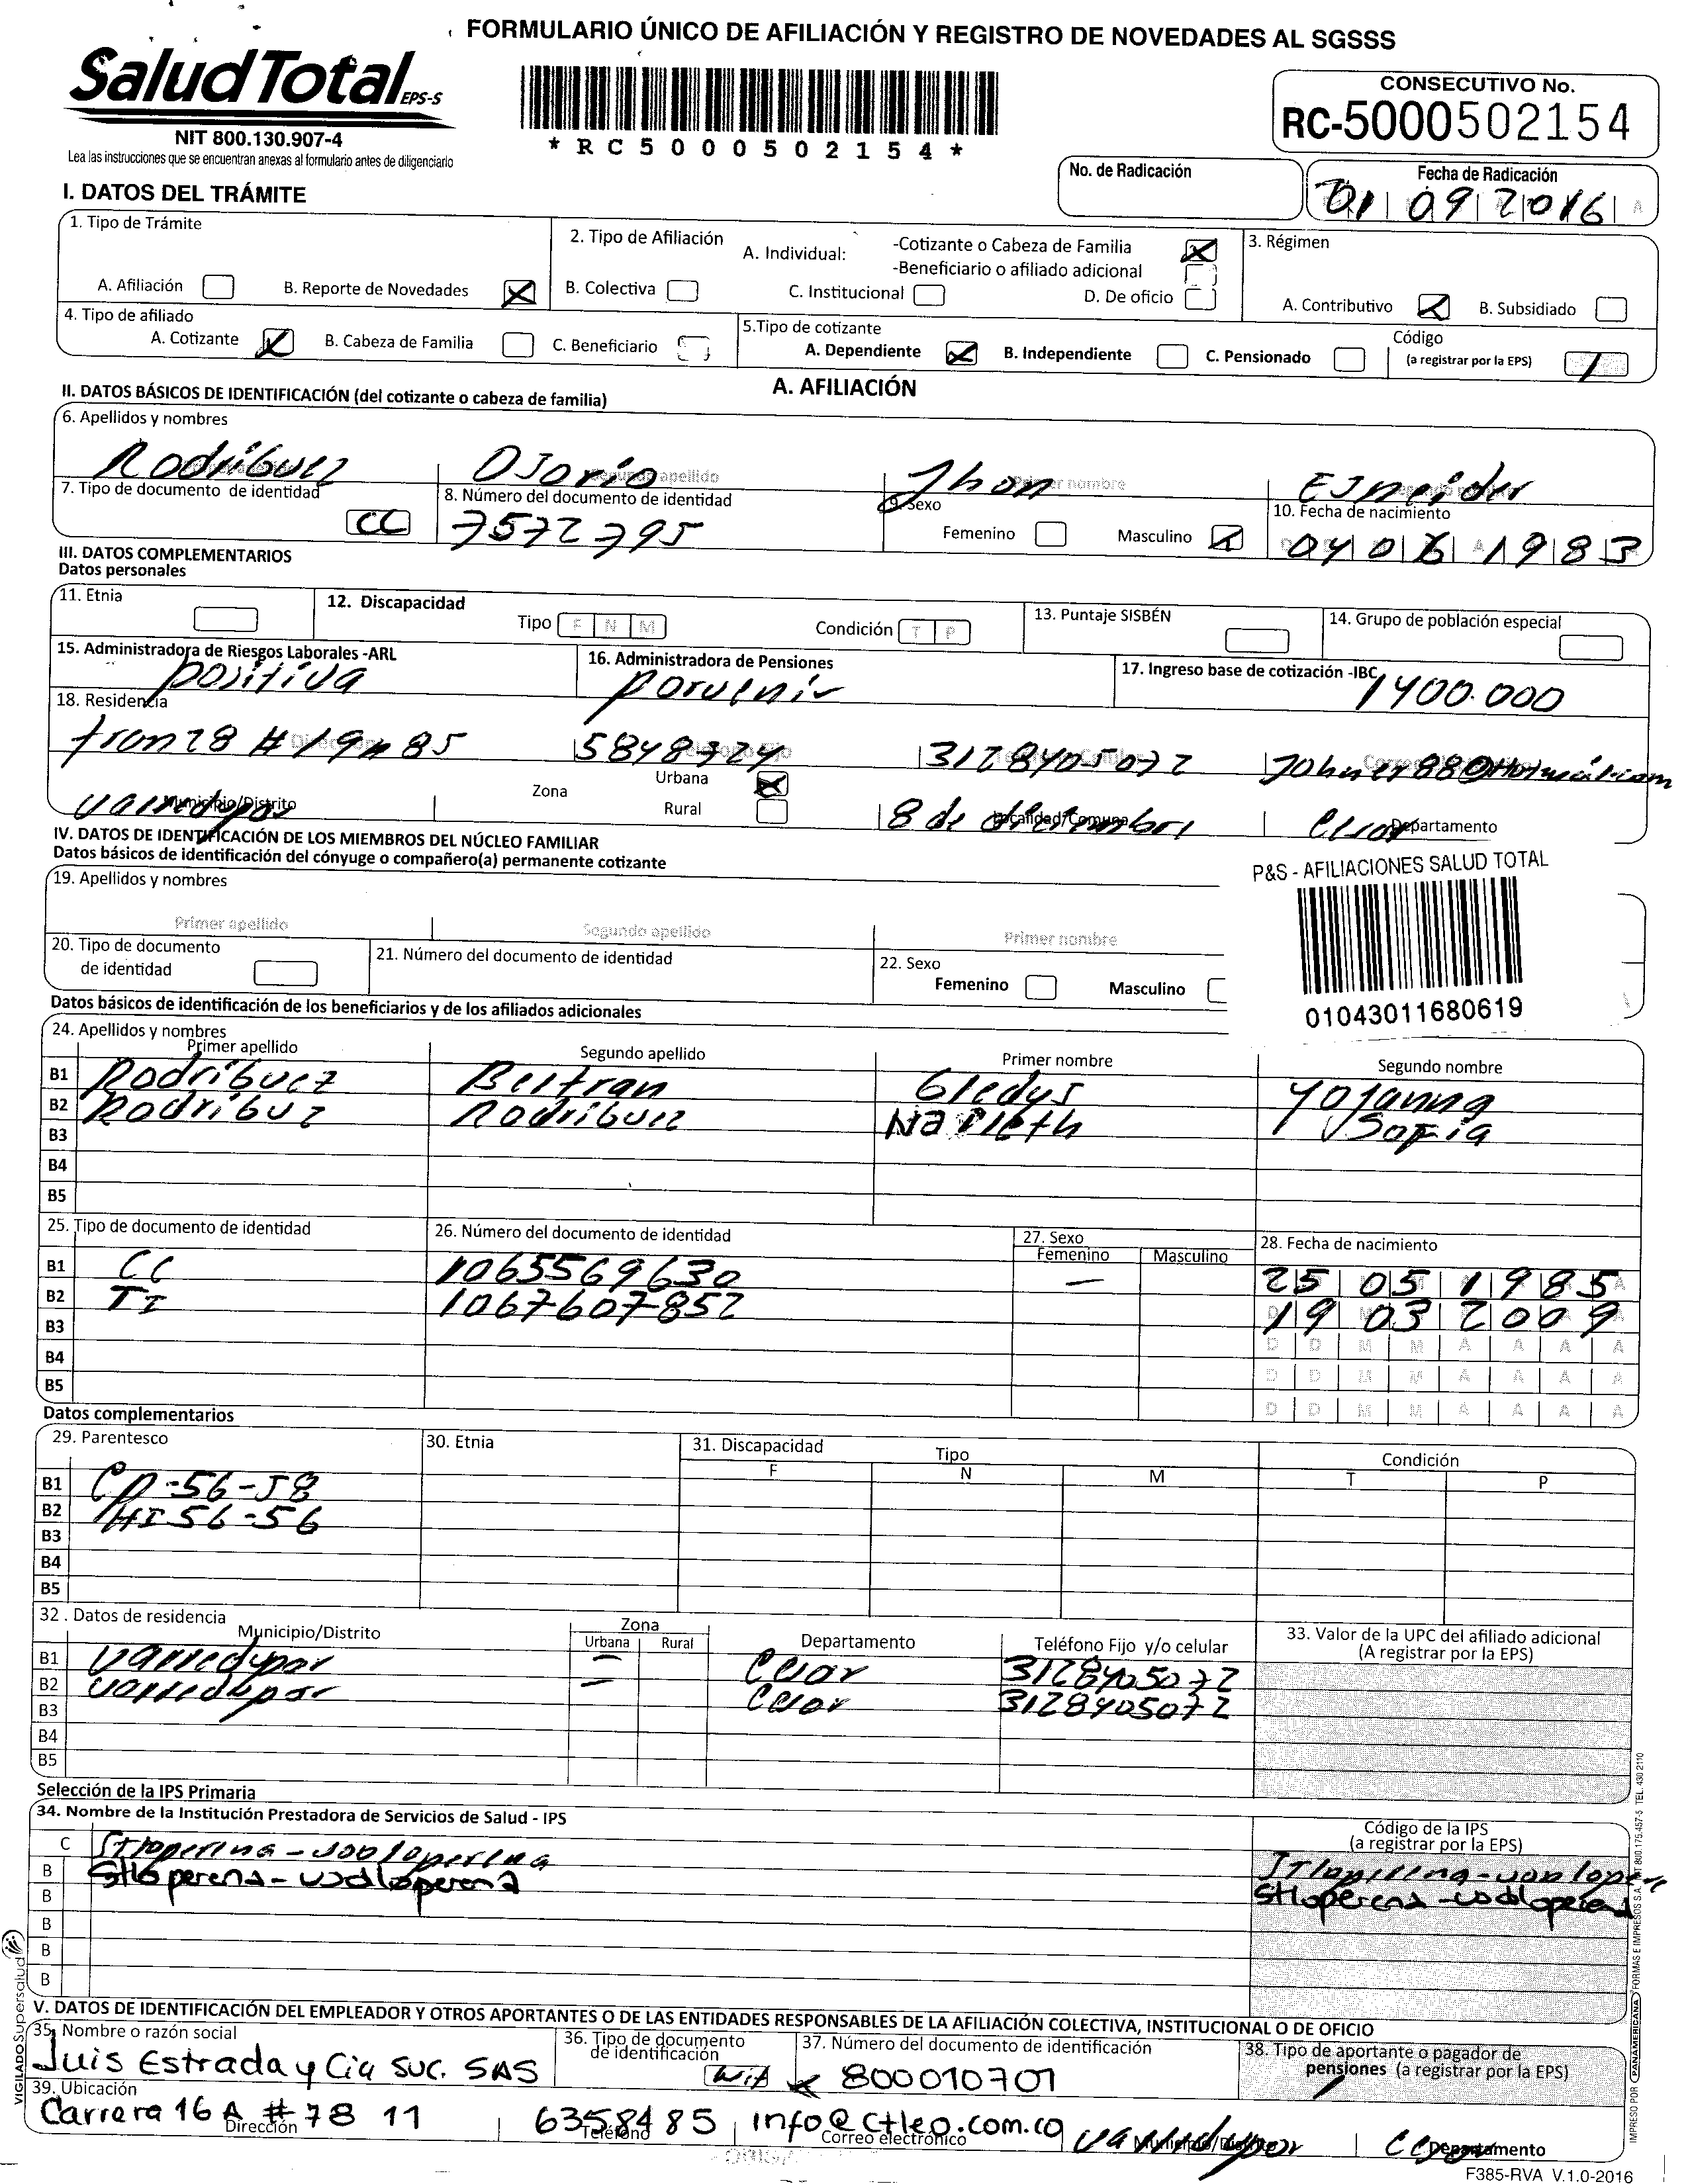 FORMULARIO ÚNICO DE AFILIACIÓN Y REGISTRO DE NOVEDADES AL SGSSS
SaludTotal EPS-S
NIT 800.130.907-4
Lea las instrucciones que se encuentran anexas al formulario antes de diligenciarlo
*RC5000502154*
CONSECUTIVO No.
RC-5000502154
No. de Radicación
Fecha de Radicación
01 09 2016
I. DATOS DEL TRÁMITE
1. Tipo de Trámite
A. Afiliación B. Reporte de Novedades X
2. Tipo de Afiliación
A. Individual: -Cotizante o Cabeza de Familia X
-Beneficiario o afiliado adicional
B. Colectiva C. Institucional D. De oficio
3. Régimen
A. Contributivo X B. Subsidiado
4. Tipo de afiliado
A. Cotizante X B. Cabeza de Familia C. Beneficiario
5.Tipo de cotizante
A. Dependiente X B. Independiente C. Pensionado
Código
(a registrar por la EPS) 1
A. AFILIACIÓN
II. DATOS BÁSICOS DE IDENTIFICACIÓN (del cotizante o cabeza de familia)
6. Apellidos y nombres
Rodríguez Osorio Jhon Esneider
Segundo apellido Primer nombre
7. Tipo de documento de identidad CC
8. Número del documento de identidad 7572795
9. Sexo
Femenino Masculino X
10. Fecha de nacimiento
04 06 1983
III. DATOS COMPLEMENTARIOS
Datos personales
11. Etnia
12. Discapacidad
Tipo F N M Condición T P
13. Puntaje SISBÉN
14. Grupo de población especial
15. Administradora de Riesgos Laborales -ARL
positiva
16. Administradora de Pensiones
porvenir
17. Ingreso base de cotización -IBC
1400.000
18. Residencia
tran 28 # 19 85 5848724 3128405072
Municipio/Distrito
Zona
Urbana X
Rural
8 de diciembre
Localidad/Comuna
Cesar
Departamento
IV. DATOS DE IDENTIFICACIÓN DE LOS MIEMBROS DEL NÚCLEO FAMILIAR
Datos básicos de identificación del cónyuge o compañero(a) permanente cotizante
P&S - AFILIACIONES SALUD TOTAL
01043011680619
19. Apellidos y nombres
Primer apellido Segundo apellido Primer nombre
20. Tipo de documento
de identidad
21. Número del documento de identidad
22. Sexo
Femenino Masculino
Datos básicos de identificación de los beneficiarios y de los afiliados adicionales
24. Apellidos y nombres
Primer apellido Segundo apellido Primer nombre Segundo nombre
B1 Rodríguez Beltran Gledys Yojanna
B2 Rodriguz Rodriguez Nasleth Sofia
B3
B4
B5
25. Tipo de documento de identidad 26. Número del documento de identidad 27. Sexo 28. Fecha de nacimiento
Femenino Masculino
B1 CC 1065569630 – 25 05 1985
B2 TI 1067607852 19 03 2009
B3 D D M M A A A A
B4 D D M M A A A A
B5 D D M M A A A A
Datos complementarios
29. Parentesco 30. Etnia 31. Discapacidad Tipo Condición
F N M T P
B1 CO-56-58
B2 HI 56-56
B3
B4
B5
32 . Datos de residencia
Municipio/Distrito Zona Departamento Teléfono Fijo y/o celular
Urbana Rural
33. Valor de la UPC del afiliado adicional
(A registrar por la EPS)
B1 Valledupar – Cesar 3128405072
B2 Valledupar – Cesar 3128405072
B3
B4
B5
Selección de la IPS Primaria
34. Nombre de la Institución Prestadora de Servicios de Salud - IPS
Código de la IPS
(a registrar por la EPS)
C
B
B
B
B
B
V. DATOS DE IDENTIFICACIÓN DEL EMPLEADOR Y OTROS APORTANTES O DE LAS ENTIDADES RESPONSABLES DE LA AFILIACIÓN COLECTIVA, INSTITUCIONAL O DE OFICIO
35. Nombre o razón social
Luis Estrada y Cia SUC. SAS
36. Tipo de documento
de identificación
Nit
37. Número del documento de identificación
800010701
38. Tipo de aportante o pagador de
pensiones (a registrar por la EPS)
39. Ubicación
Carrera 16 A # 78 11 6358485 info@ctleo.com.co Valledupar Cesar
Dirección Teléfono Correo electrónico Municipio/Distrito Departamento
F385-RVA V.1.0-2016
VIGILADO Supersalud
IMPRESO POR PANAMERICANA FORMAS E IMPRESOS S.A. NIT 800.175.457-5 TEL. 430 2110